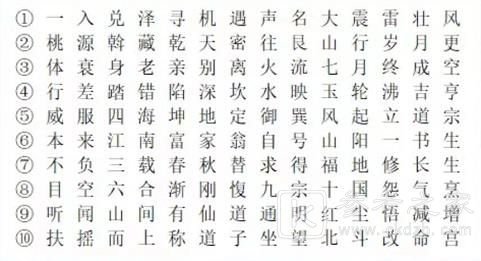 ① 一 入 兑 泽 寻 机 遇 声 名 大 震 雷 壮 风
② 桃 源 斡 藏 乾 天 密 往 艮 山 行 岁 月 更
③ 体 衰 身 老 亲 别 离 火 流 七 月 终 成 空
④ 行 差 踏 错 陷 深 坎 水 映 玉 轮 沸 吉 亨
⑤ 威 服 四 海 坤 地 定 御 巽 风 起 立 道 宗
⑥ 本 来 江 南 富 家 翁 自 号 山 阳 一 书 生
⑦ 不 负 三 载 春 秋 替 求 得 福 地 修 长 生
⑧ 目 空 六 合 渐 刚 愎 九 宗 十 国 怨 气 烹
⑨ 听 闻 山 间 有 仙 道 通 明 红 尘 悟 减 增
⑩ 扶 摇 而 上 称 道 子 坐 望 北 斗 改 命 宫